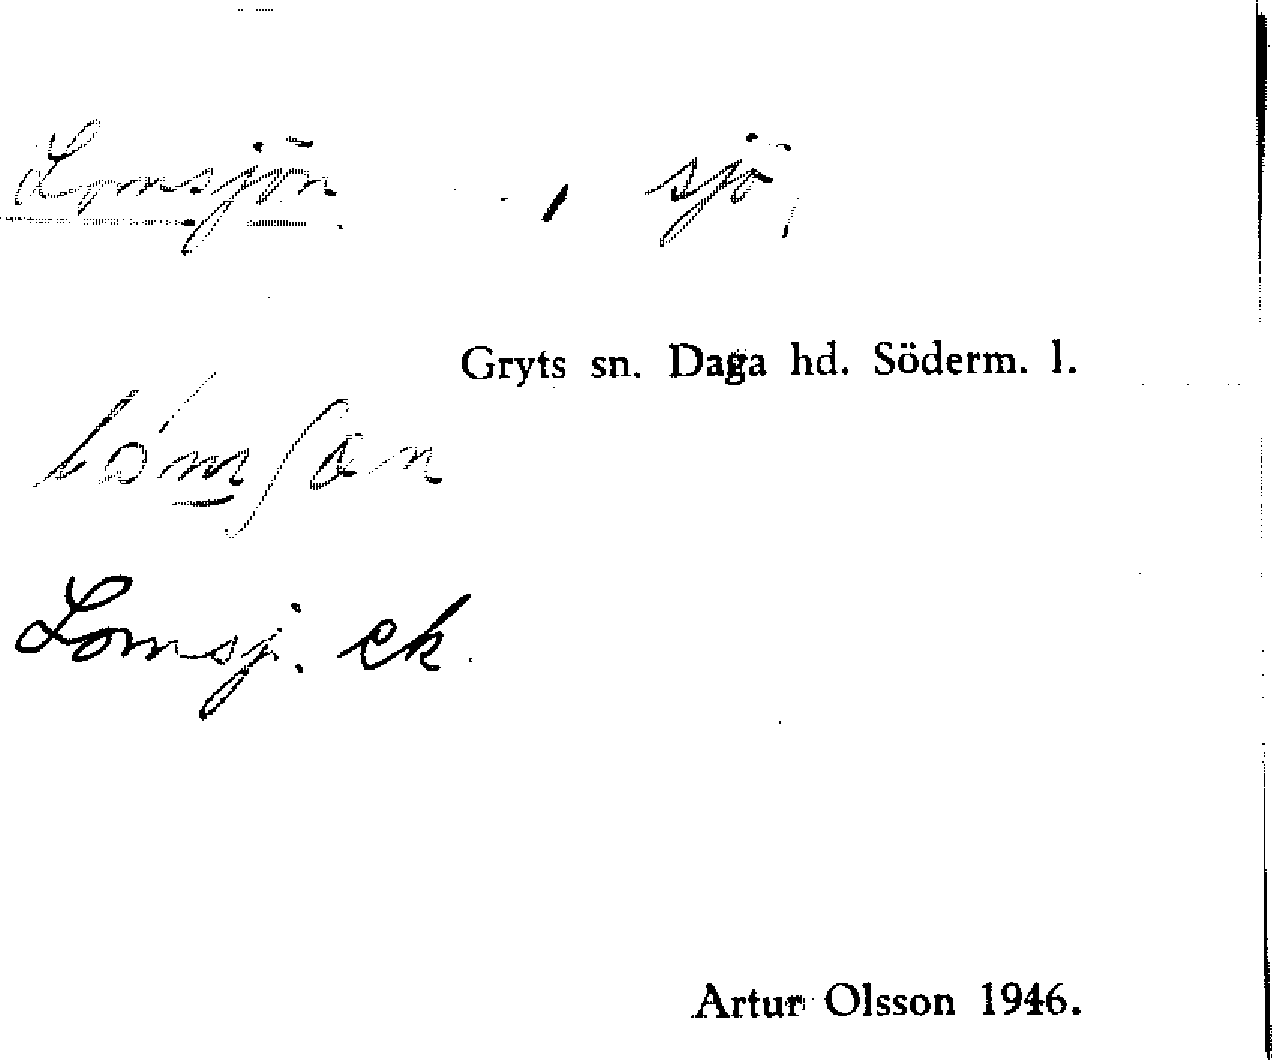 Lomsjön , sjö,
Gryts sn. Daga hd. Söderm. l.
lómʃan
Lomsj. ek.
Artur Olsson 1946.